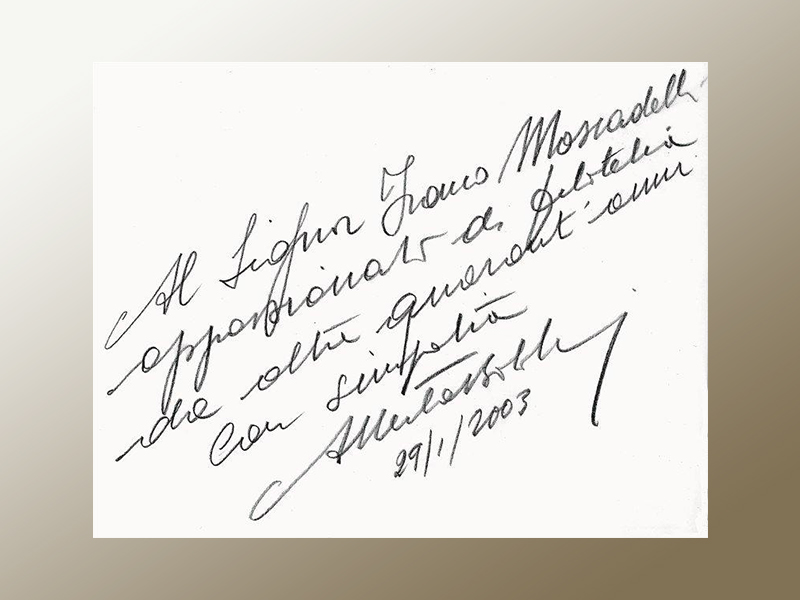 Al Signor Franco Moscadelli
appassionato di filatelia
da oltre quarant'anni
Con simpatia
29/1/2003